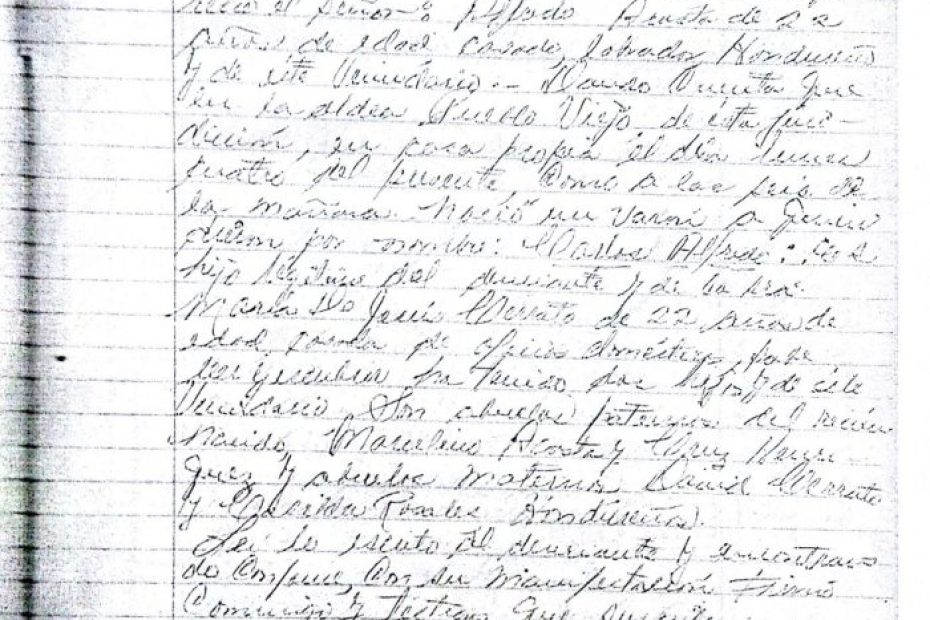 el señor Alfredo Acosta de 22
años de edad casado, labrador, Hondureño
y de este Vecindario.- Dando Cuenta que
en la aldea Pueblo Viejo, de esta juris-
dicción, en casa propia el día lunes
cuatro del presente, Como a las seis de
la mañana. Nació un Varón a quien
dieron por nombre: Carlos Alfredo: Es
hijo legítimo del denunciante y de la sra
María De Jesús de 22 años de
edad, casada de oficios domésticos,
por hijos y de este
Vecindario, Son abuelos paternos del recién
Nacido, Marcelino Acosta y
y abuelos maternos David
y Hondureños.
Leí lo escrito al denunciante y encontran-
do Conforme, Con su Manifestación Firmó
Conmigo y Testigos Que